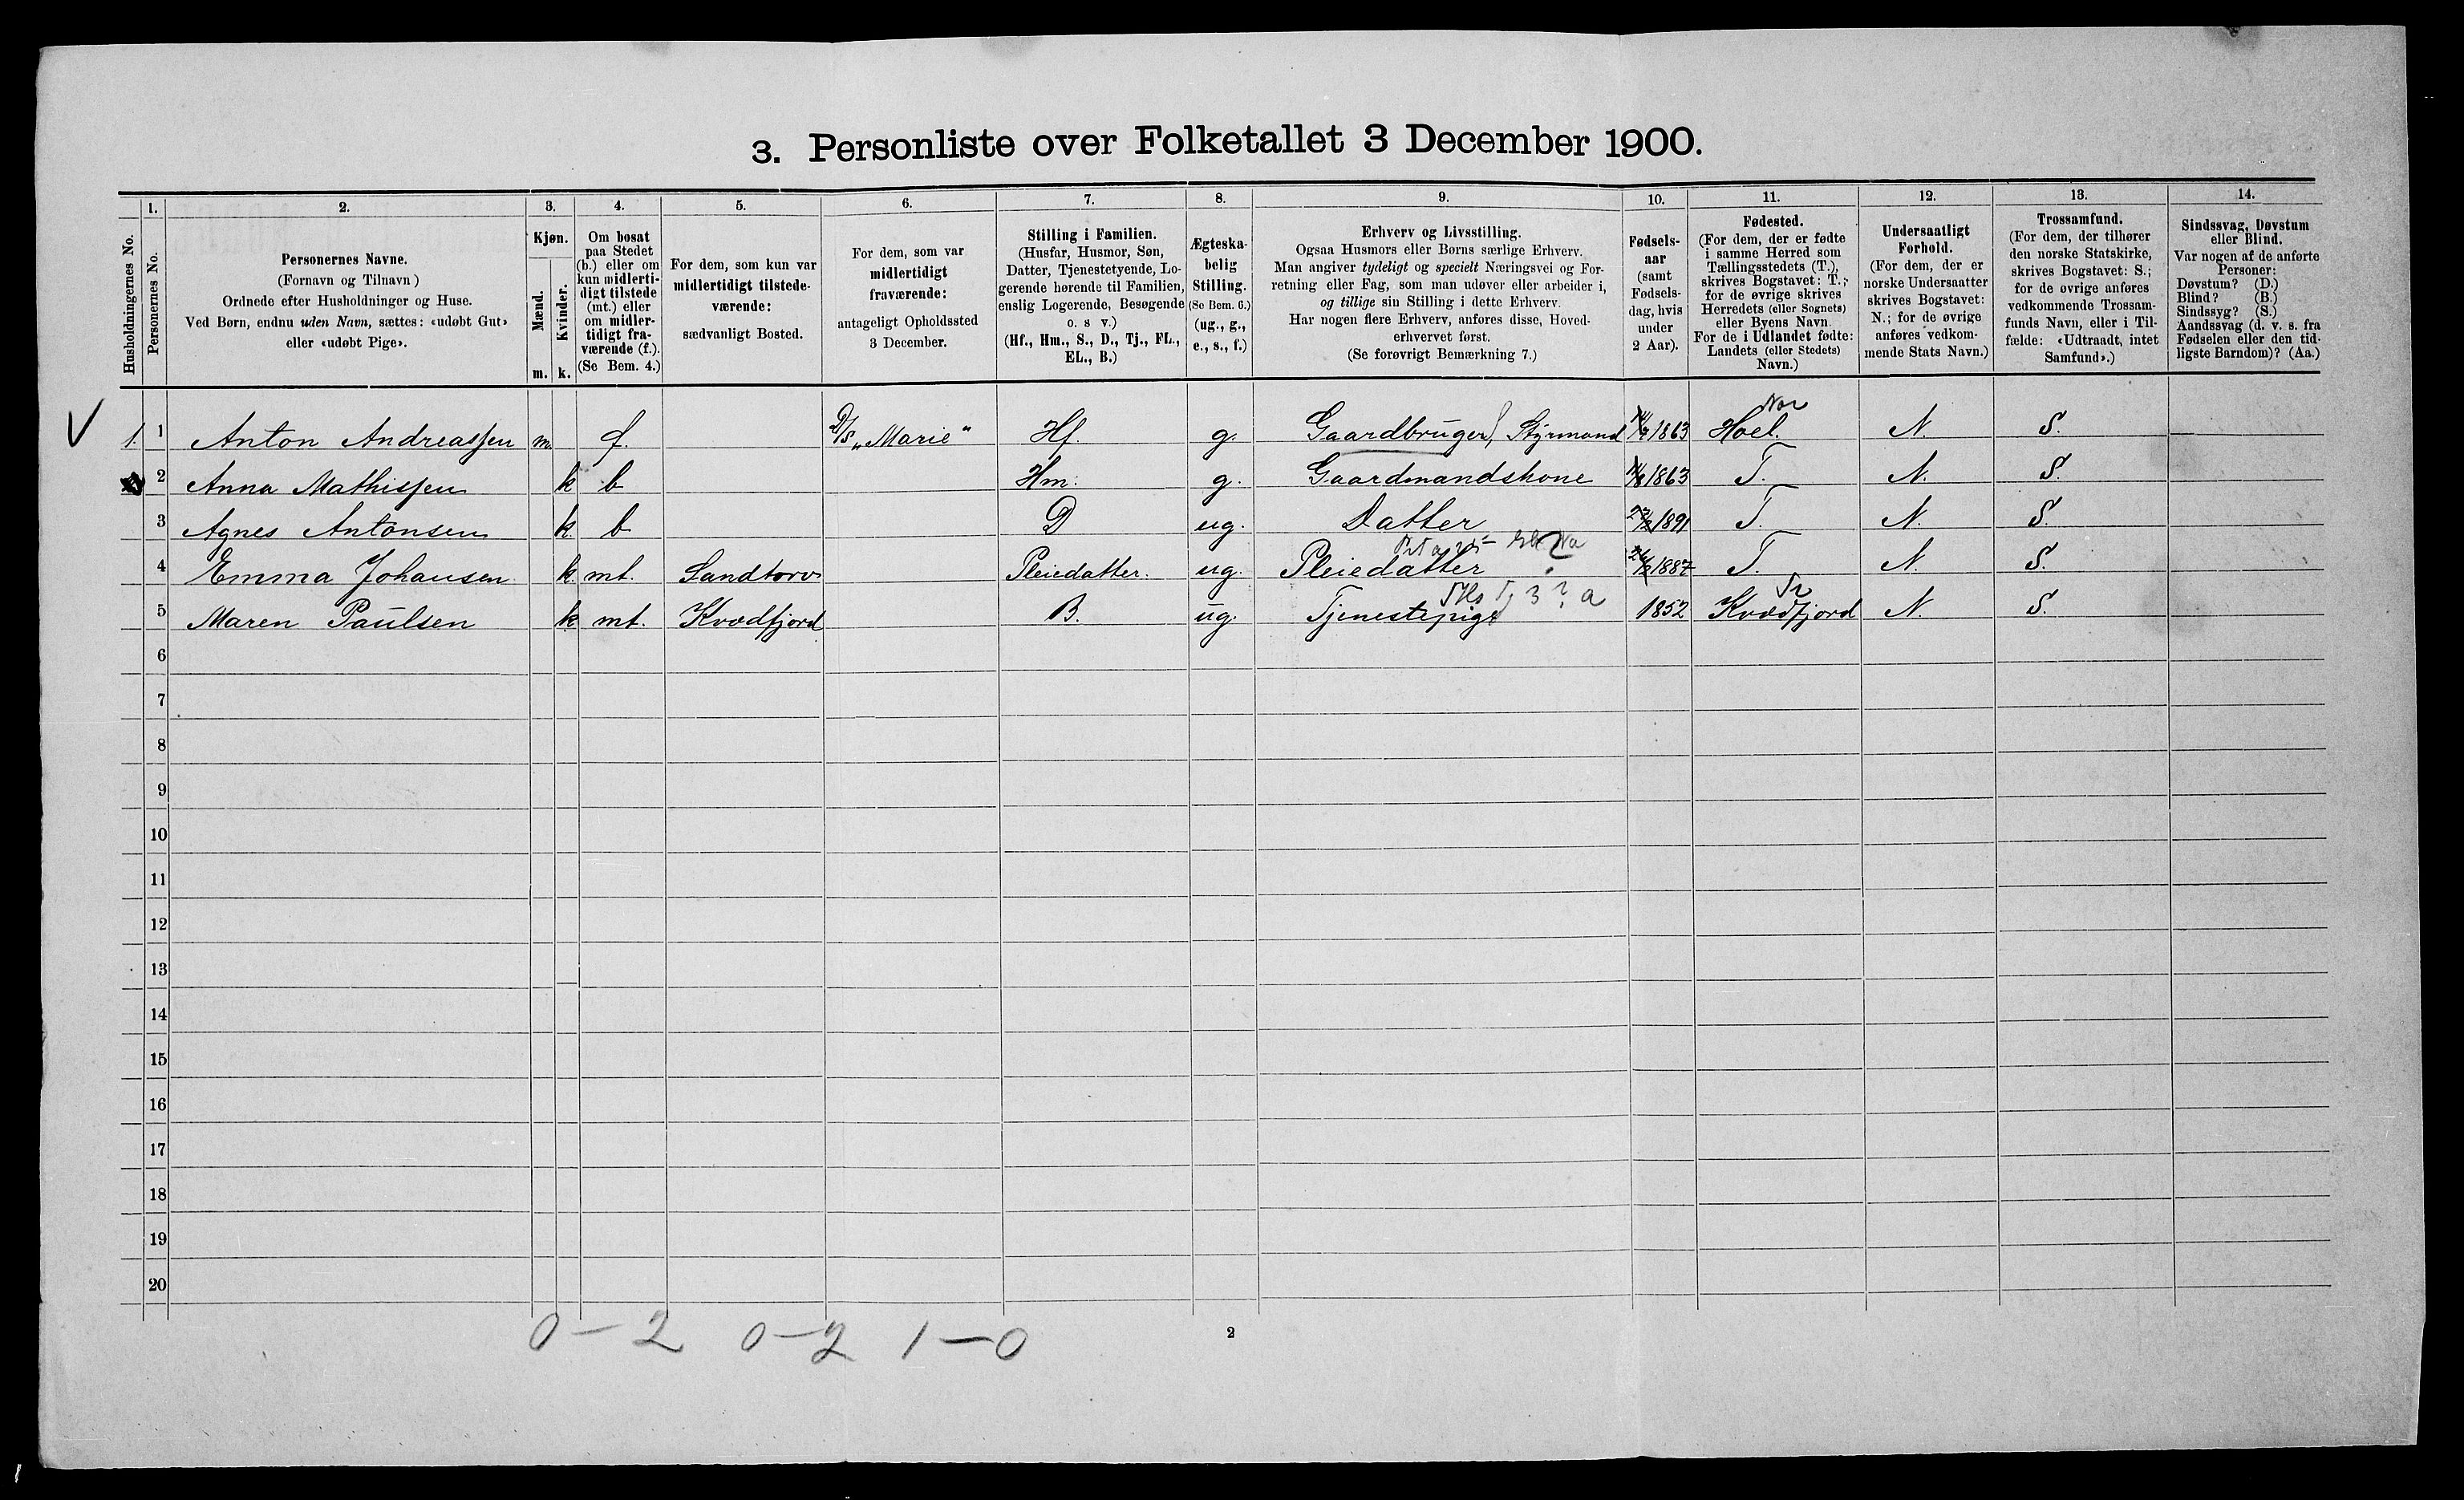 3. Personliste over Folketallet 3 December 1900.
Husholdningernes No.
1. Personernes No.
2. Personernes Navne.
(Fornavn og Tilnavn)
Ordnede efter Husholdninger og Huse.
Ved Børn, endnu uden Navn, sættes: «udøbt Gut»
eller «udøbt Pige».
3. Kjøn.
Mænd. m.
Kvinder. k.
4. Om bosat
paa Stedet
(b.) eller om
kun midlerti-
digt tilstede
(mt.) eller
om midler-
tidigt fra-
værende (f.).
(Se Bem. 4.)
5. For dem, som kun var
midlertidigt tilstede-
værende:
sædvanligt Bosted.
6. For dem, som var
midlertidigt
fraværende:
antageligt Opholdssted
3 December.
7. Stilling i Familien.
(Husfar, Husmor, Søn,
Datter, Tjenestetyende, Lo-
gerende hørende til Familien,
enslig Logerende, Besøgende
o. s v.)
(Hf., Hm., S., D., Tj., FL.,
EL., B.)
8. Ægteska-
belig
Stilling.
(Se Bem. 6.)
(ug., g.,
e., s., f.)
9. Erhverv og Livsstilling.
Ogsaa Husmors eller Børns særlige Erhverv.
Man angiver tydeligt og specielt Næringsvei og For-
retning eller Fag, som man udøver eller arbeider i,
og tillige sin Stilling i dette Erhverv.
Har nogen flere Erhverv, anføres disse, Hoved-
erhvervet først.
(Se forøvrigt Bemærkning 7.)
10. Fødsels-
aar
(samt
Fødsels-
dag, hvis
under
2 Aar).
11. Fødested.
(For dem, der er fødte
i samme Herred som
Tællingsstedets (T.),
skrives Bogstavet: T.;
for de øvrige skrives
Herredets (eller Sognets)
eller Byens Navn.
For de i Udlandet fødte:
Landets (eller Stedets)
Navn.)
12. Undersaatligt
Forhold.
(For dem, der er
norske Undersaatter
skrives Bogstavet:
N.; for de øvrige
anføres vedkom-
mende Stats Navn.)
13. Trossamfund.
(For dem, der tilhører
den norske Statskirke,
skrives Bogstavet: S.;
for de øvrige anføres
vedkommende Trossam-
funds Navn, eller i Til-
fælde: «Udtraadt, intet
Samfund».)
14. Sindssvag, Døvstum
eller Blind.
Var nogen af de anførte
Personer:
Døvstum? (D.)
Blind? (B.)
Sindssyg? (S.)
Aandssvag (d. v. s. fra
Fødselen eller den tid-
ligste Barndom)? (Aa.)
V 1. 1 Anton Andreassen m. f. D/S „Marie" Hf. g. Gaardbruger, Styrmand 1863 Hoel. N. S.
2 Anna Mathissen k b Hm. g. Gaardmandskone 1863 T. N. S.
3 Agnes Antonsen k. b D ug. Datter 1891 T. N. S.
4 Emma Johansen k. mt. Sandtorv Pleiedatter. ug. Pleiedatter 1887 T. N. S.
5 Maren Paulsen k mt. Kvædfjord B. ug. Tjenestepige 1852 Kvædfjord N. S.
6
7
8
9
10
11
12
13
14
15
16
17
18
19
20
0-2 0-2 1-0
2